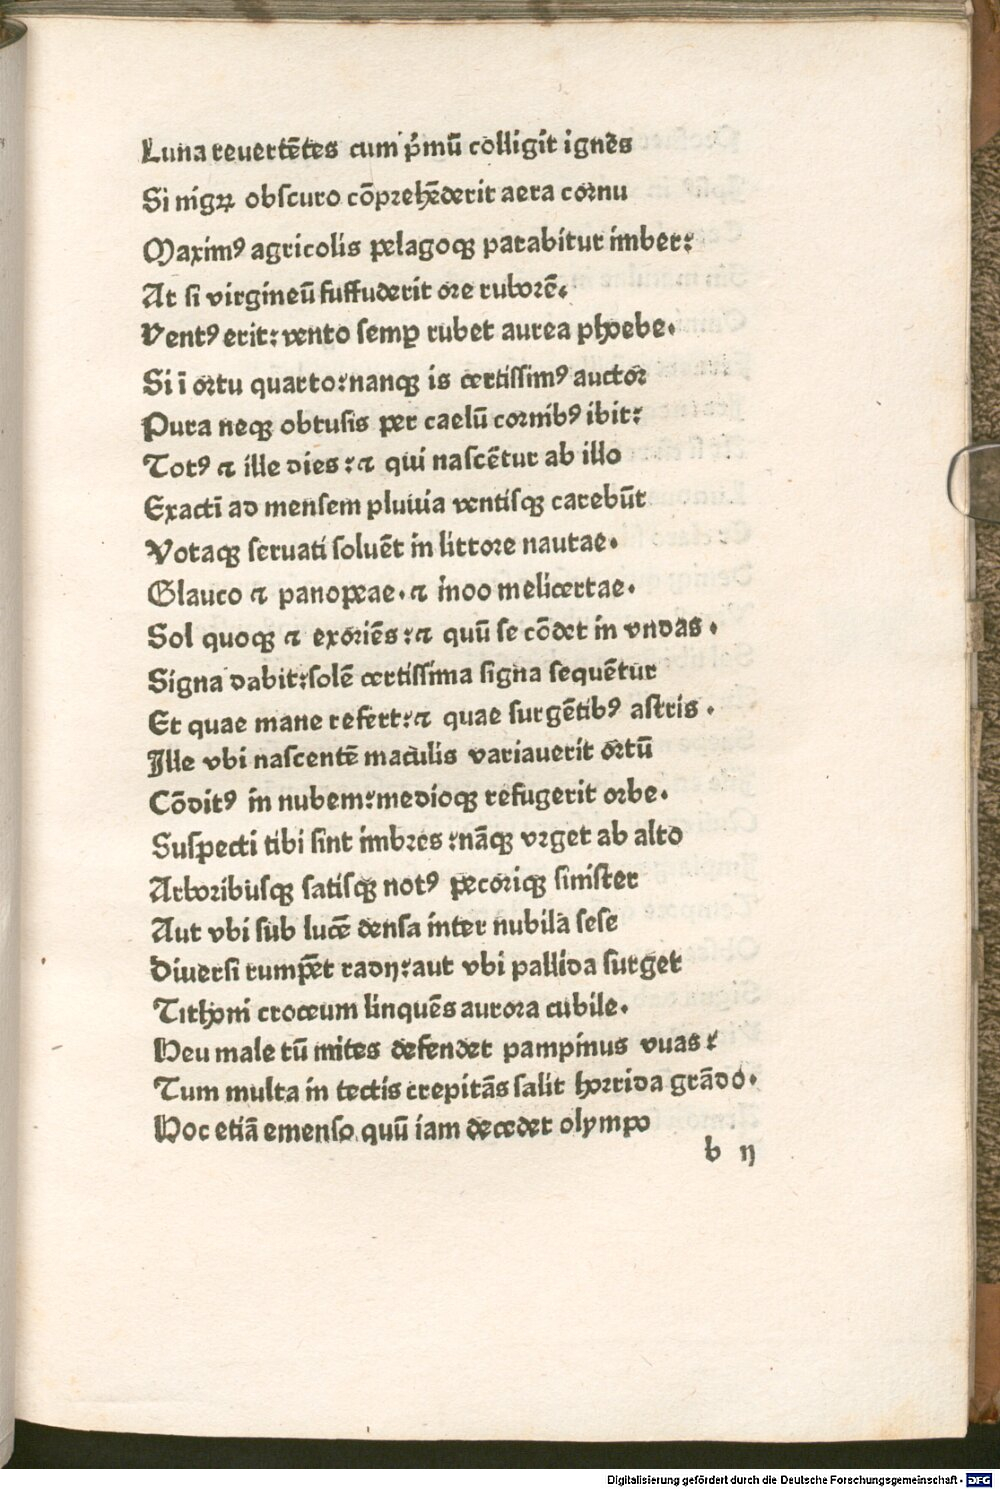 Luna reuertētes cum p̄mū colligit ignēs
Si nigꝝ obscuro cōprehēderit aera cornu
Maximꝰ agricolis pelagoqꝫ parabitur imber:
At si virgineū suffuderit ore ruborē.
Ventꝰ erit: vento semꝑ rubet aurea phoebe.
Si ī ortu quarto: nanqꝫ is certissimꝰ auctor
Pura neqꝫ obtusis per caelū cornibꝰ ibit:
Totꝰ ⁊ ille dies: ⁊ qui nascētur ab illo
Exacti ad mensem pluuia ventisqꝫ carebūt
Votaqꝫ seruati soluēt in littore nautae.
Glauco ⁊ panopeae. ⁊ inoo melicertae.
Sol quoqꝫ ⁊ exoriēs: ⁊ quū se cōdet in vndas.
Signa dabit: solē certissima signa sequētur
Et quae mane refert: ⁊ quae surgētibꝰ astris.
Ille vbi nascentē maculis variauerit ortū
Cōditꝰ in nubem: medioqꝫ refugerit orbe.
Suspecti tibi sint imbres: nāqꝫ vrget ab alto
Arboribusqꝫ satisqꝫ notꝰ pecoriqꝫ sinister
Aut vbi sub lucē densa inter nubila sese
Diuersi rumpēt radij: aut vbi pallida surget
Tithoni croceum linquēs aurora cubile.
Heu male tū mites defendet pampinus vuas:
Tum multa in tectis crepitās salit horrida grādo.
Hoc etiā emenso quū iam decedet olympo
b ij
Digitalisierung gefördert durch die Deutsche Forschungsgemeinschaft - DFG